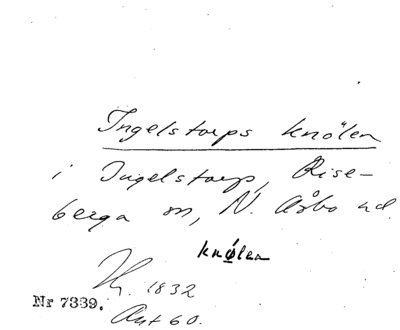 Ingelstorps knölen
i Ingelstorp, Rise-
berga sn, N. Åsbo hd.
knølen
1832
Nr 7339.
Akt 60.